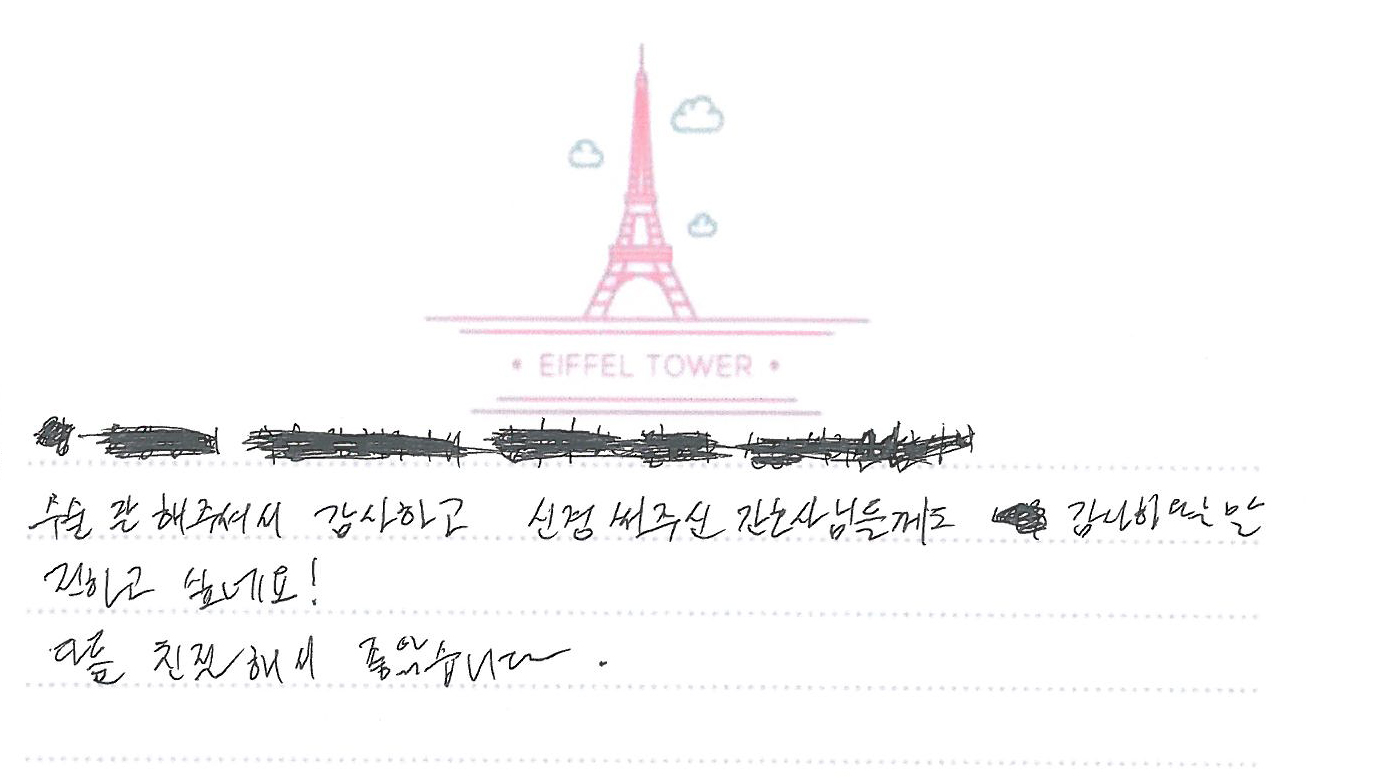 • EIFFEL TOWER •
수술 잘 해주셔서 감사하고 신경 써주신 간호사님들께도 감사하다는 말
전하고 싶네요!
다들 친절해서 좋았습니다.